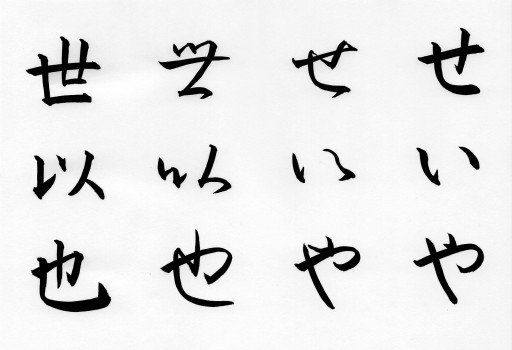 世 世 せ せ
以 以 い い
也 也 や や